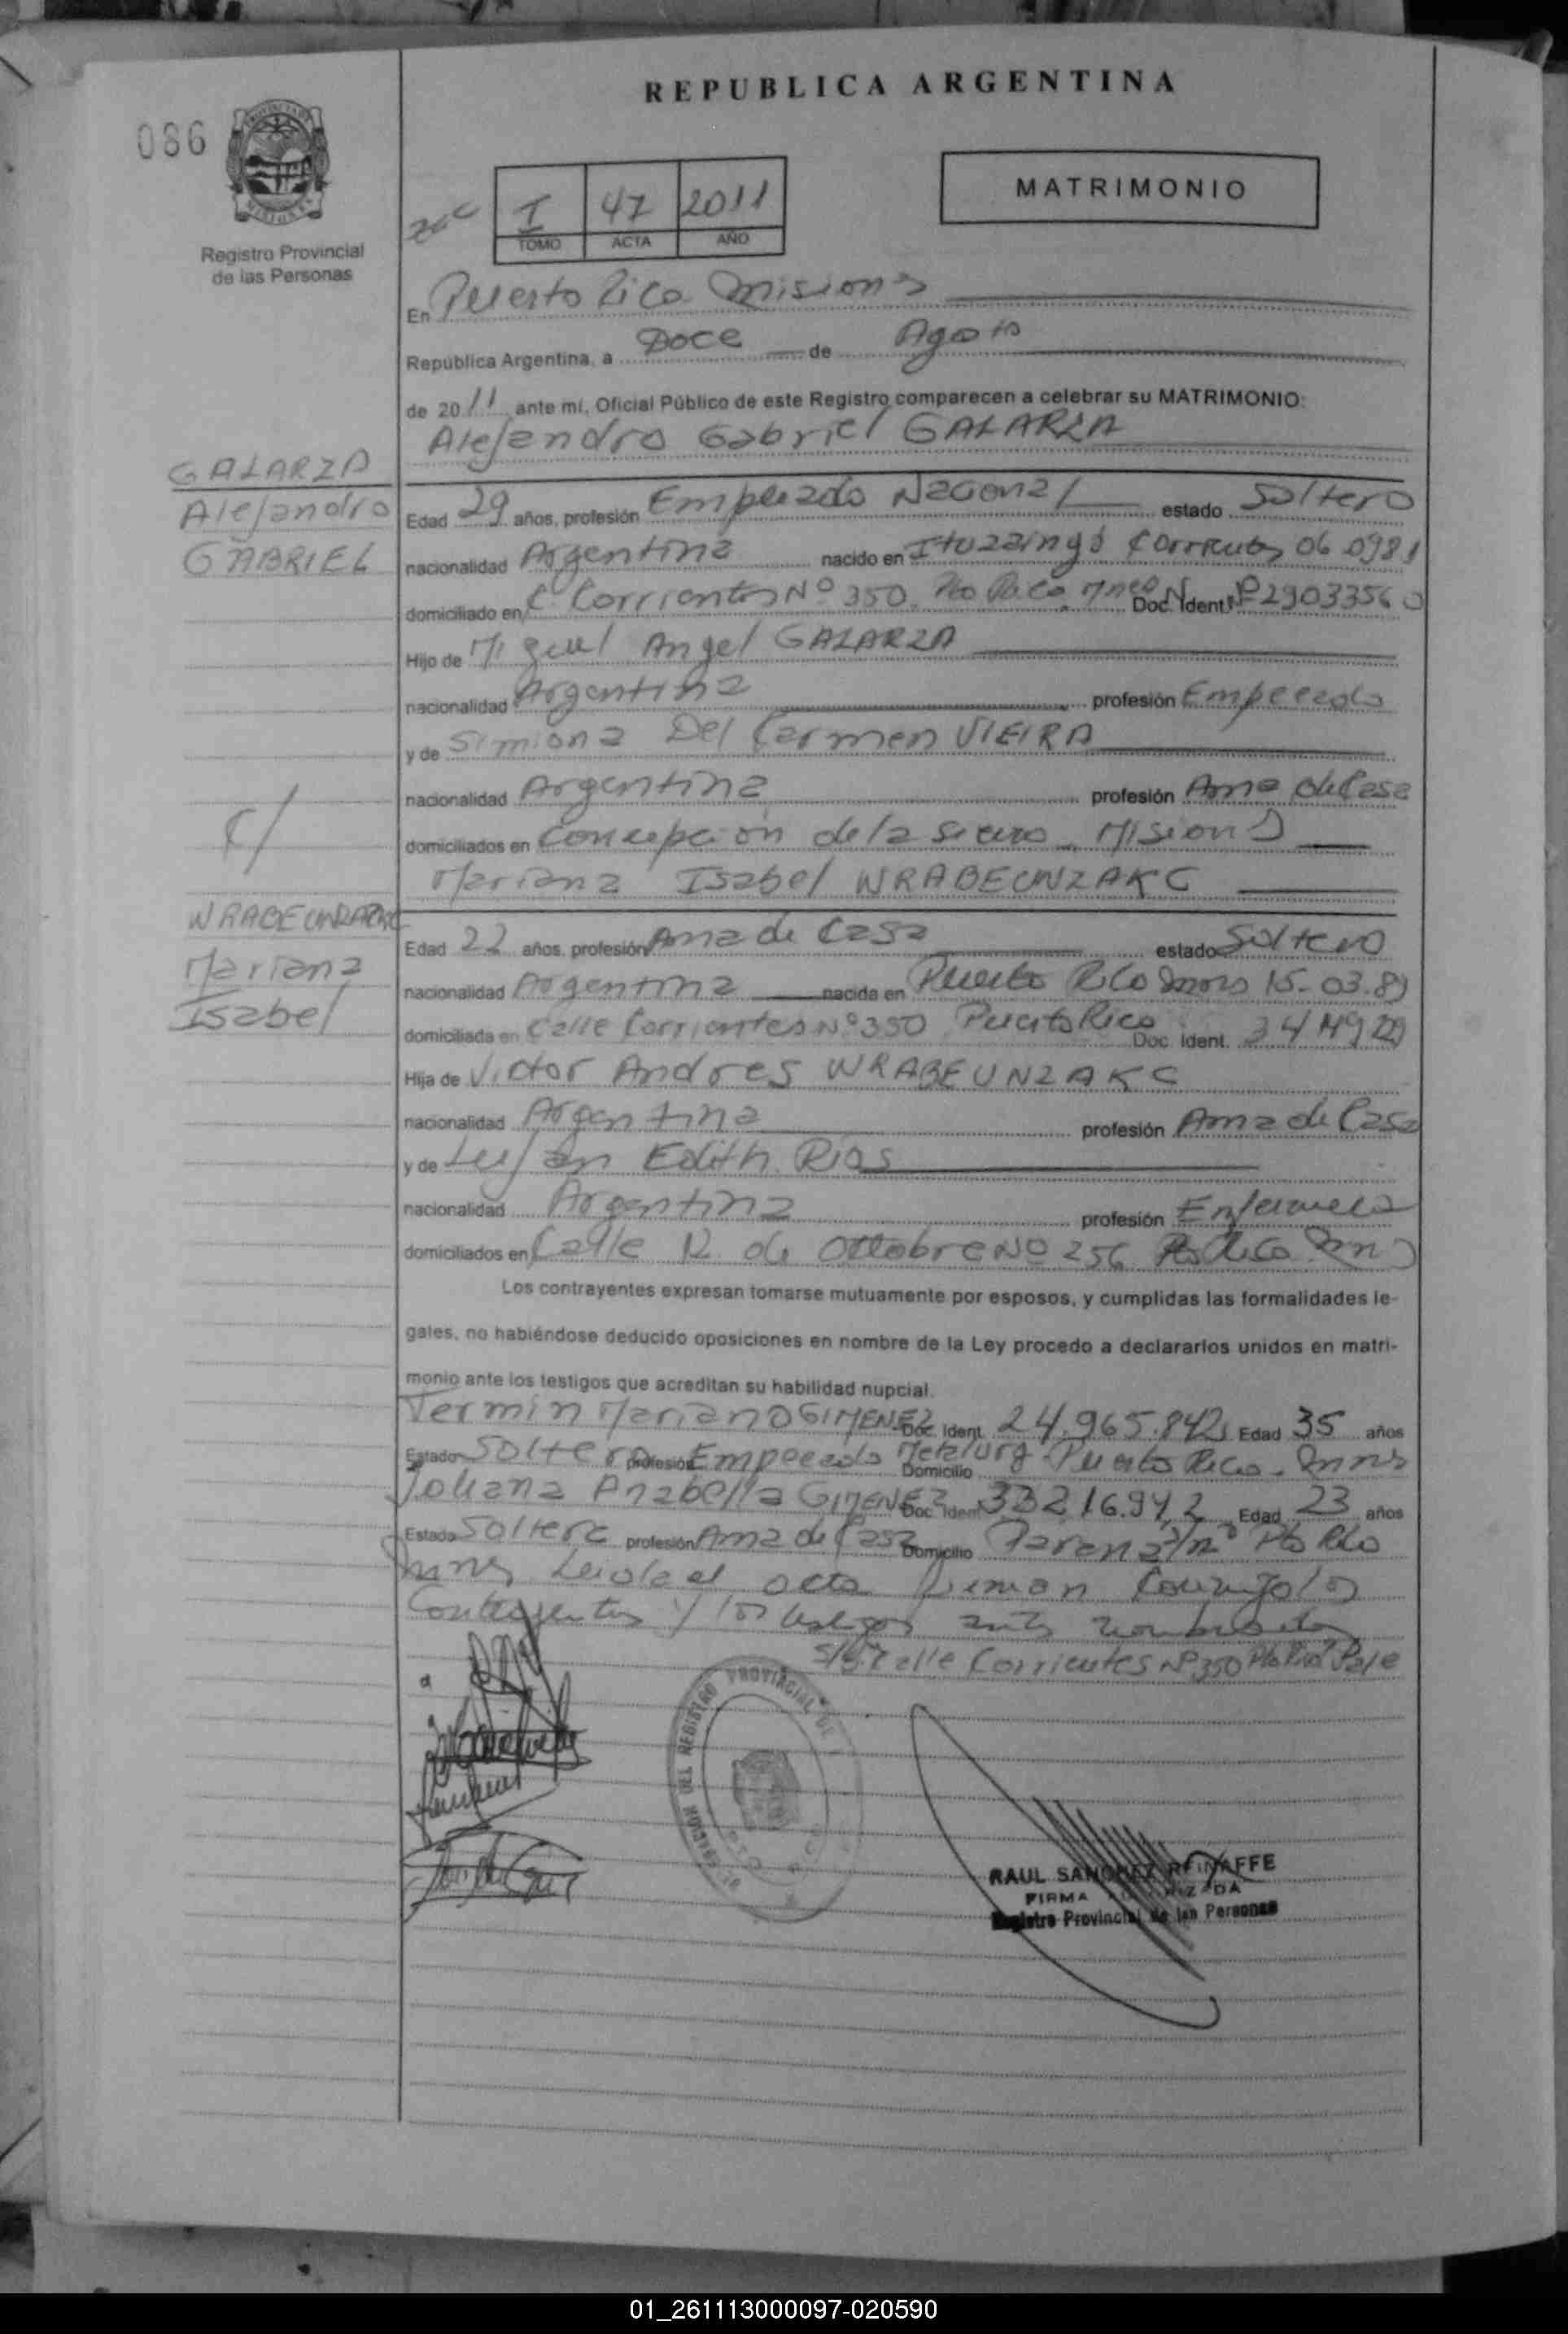 REPUBLICA ARGENTINA
086
PROVINCIA DE MISIONES
Registro Provincial
de las Personas
I 47 2011
TOMO ACTA AÑO
MATRIMONIO
En Puerto Rico Misiones
República Argentina, a Doce de Agosto
de 2011 ante mí, Oficial Público de este Registro comparecen a celebrar su MATRIMONIO:
Alejandro Gabriel GALARZA
GALARZA
Alejandro
GABRIEL
Edad 29 años, profesión Empleado Nacional estado Soltero
nacionalidad Argentina nacido en Ituzaingó Corrientes 06 0981
domiciliado en C. Corrientes Nº 350. Doc. Ident. Nº 29033560
Hijo de Miguel Angel GALARZA
nacionalidad Argentina profesión Empleado
y de Simiona Del Carmen VIEIRA
nacionalidad Argentina profesión Ama de Casa
domiciliados en Concepción de la Sierra Misiones
C/
Mariana Isabel WRABEUNZAKC
WRABEUNZAKC
Mariana
Isabel
Edad 22 años, profesión Ama de Casa estado Soltero
nacionalidad Argentina nacida en Puerto Rico Mnes 15-03.89
domiciliada en Calle Corrientes Nº 350 Puerto Rico Doc. Ident.
Hija de Victor Andres WRABEUNZAKC
nacionalidad Argentina profesión Ama de Casa
y de Lujan Edith Rios
nacionalidad Argentina profesión Enfermera
domiciliados en Calle 12 de Octobre Nº 256 Pto Rico Mnes
Los contrayentes expresan tomarse mutuamente por esposos, y cumplidas las formalidades le-
gales, no habiéndose deducido oposiciones en nombre de la Ley procedo a declararlos unidos en matri-
monio ante los testigos que acreditan su habilidad nupcial.
Fermin Mariano GIMENEZ Doc. Ident. 24.965.842 Edad 35 años
Estado Soltero profesión Empleado Metalurg Domicilio Puerto Rico - Mnes
Johana Anabella GIMENEZ Doc. Ident. 33216.942 Edad 23 años
Estado Soltera profesión Ama de Casa Domicilio Pto Rico
Mnes Leida el acta firman conmigo los
Contrayentes y los testigos antes nombrados
Calle Corrientes Nº 350 Pto Rico Vale
RAUL SANCHEZ REINAFFE
FIRMA AUTORIZADA
Registro Provincial de las Personas
01_261113000097-020590